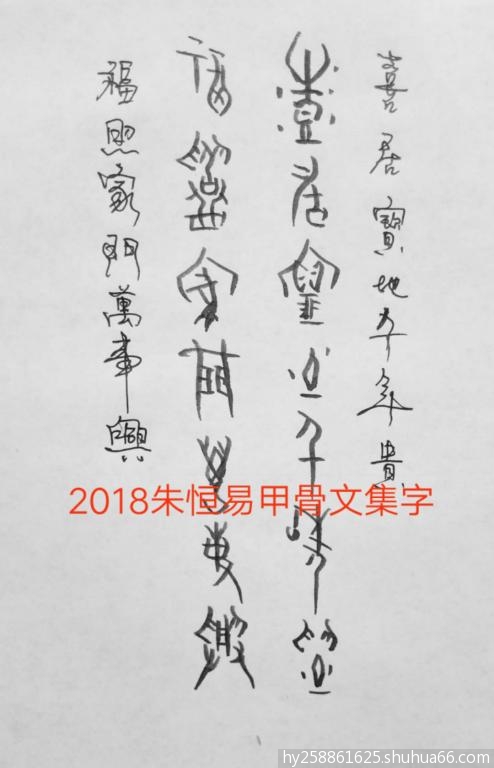 喜居寶地千年貴
喜居寶地千年貴
福照家門萬事興
福照家門萬事興
2018朱恒易甲骨文集字
hy258861625.shuhua66.com